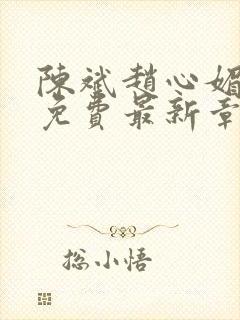 陳斌趙心媚
免費最新章
総小悟